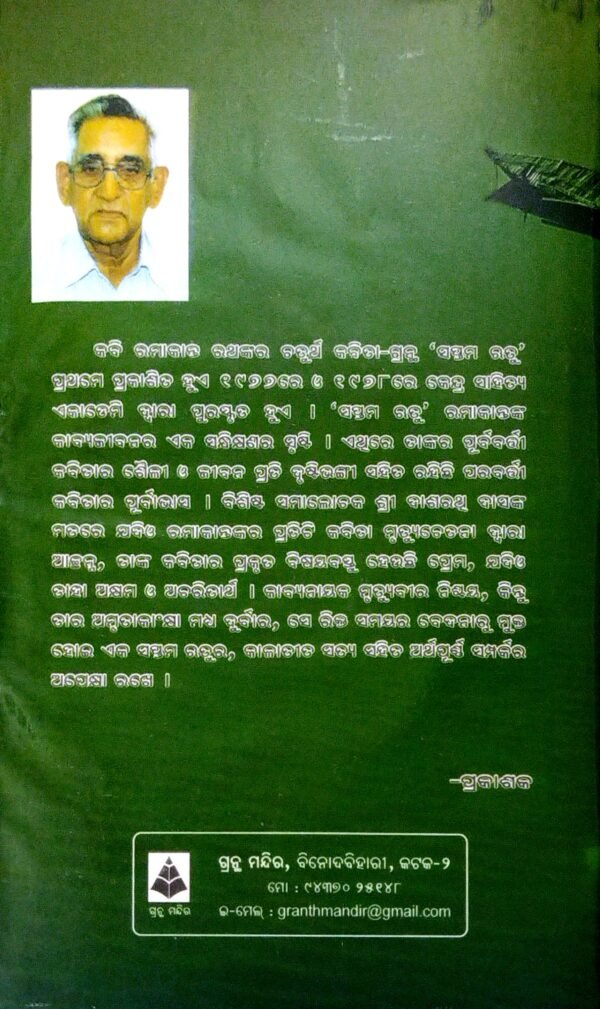 କବି ରମାକାନ୍ତ ରଥଙ୍କର ଚତୁର୍ଥ କବିତା-ଗ୍ରନ୍ଥ ‘ସପ୍ତମ ଋତୁ’
ପ୍ରଥମେ ପ୍ରକାଶିତ ହୁଏ ୧୯୭୭ରେ ଓ ୧୯୭୮ରେ କେନ୍ଦ୍ର ସାହିତ୍ୟ
ଏକାଡେମି ଦ୍ୱାରା ପୁରସ୍କୃତ ହୁଏ । ‘ସପ୍ତମ ଋତୁ’ ରମାକାନ୍ତଙ୍କ
କାବ୍ୟଜୀବନର ଏକ ସନ୍ଧିକ୍ଷଣର ସୃଷ୍ଟି । ଏଥିରେ ତାଙ୍କର ପୂର୍ବବର୍ତ୍ତୀ
କବିତାର ଶୈଳୀ ଓ ଜୀବନ ପ୍ରତି ଦୃଷ୍ଟିଭଙ୍ଗୀ ସହିତ ରହିଛି ପରବର୍ତ୍ତୀ
କବିତାର ପୂର୍ବାଭାସ । ବିଶିଷ୍ଟ ସମାଲୋଚକ ଶ୍ରୀ ଦାଶରଥି ଦାସଙ୍କ
ମତରେ ଯଦିଓ ରମାକାନ୍ତଙ୍କର ପ୍ରତିଟି କବିତା ମୃତ୍ୟୁଚେତନା ଦ୍ୱାରା
ଆଚ୍ଛନ୍ନ, ତାଙ୍କ କବିତାର ପ୍ରକୃତ ବିଷୟବସ୍ତୁ ହେଉଛି ପ୍ରେମ, ଯଦିଓ
ତାହା ଅକ୍ଷମ ଓ ଅଚରିତାର୍ଥ । କାବ୍ୟନାୟକ ମୃତ୍ୟୁବୀର ନିଶ୍ଚୟ, କିନ୍ତୁ
ତାର ଅମୃତାକାଂକ୍ଷା ମଧ୍ୟ ଦୁର୍ବାର, ସେ ରିକ୍ତ ସମୟର ବେଦନାରୁ ମୁକ୍ତ
ହୋଇ ଏକ ସପ୍ତମ ଋତୁର, କାଳାତୀତ ସତ୍ୟ ସହିତ ଅର୍ଥପୂର୍ଣ୍ଣ ସମ୍ପର୍କର
ଅପେକ୍ଷା ରଖେ ।
–ପ୍ରକାଶକ
ଗ୍ରନ୍ଥ ମନ୍ଦିର, ବିନୋଦବିହାରୀ, କଟକ-୨
ମୋ : ୯୪୩୭୦ ୨୫୧୪୮
ଗ୍ରନ୍ଥ ମନ୍ଦିର
ଇ-ମେଲ୍ : granthmandir@gmail.com